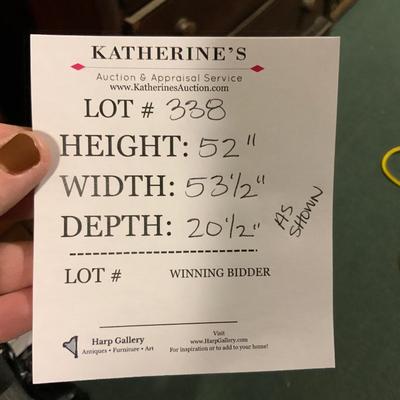 KATHERINE'S
Auction & Appraisal Service
www.KatherinesAuction.com
LOT # 338
HEIGHT: 52"
WIDTH: 53 1/2"
DEPTH: 20 1/2"
AS
SHOWN
LOT # WINNING BIDDER
Harp Gallery
Antiques • Furniture • Art
Visit
www.HarpGallery.com
For inspiration or to add to your home!